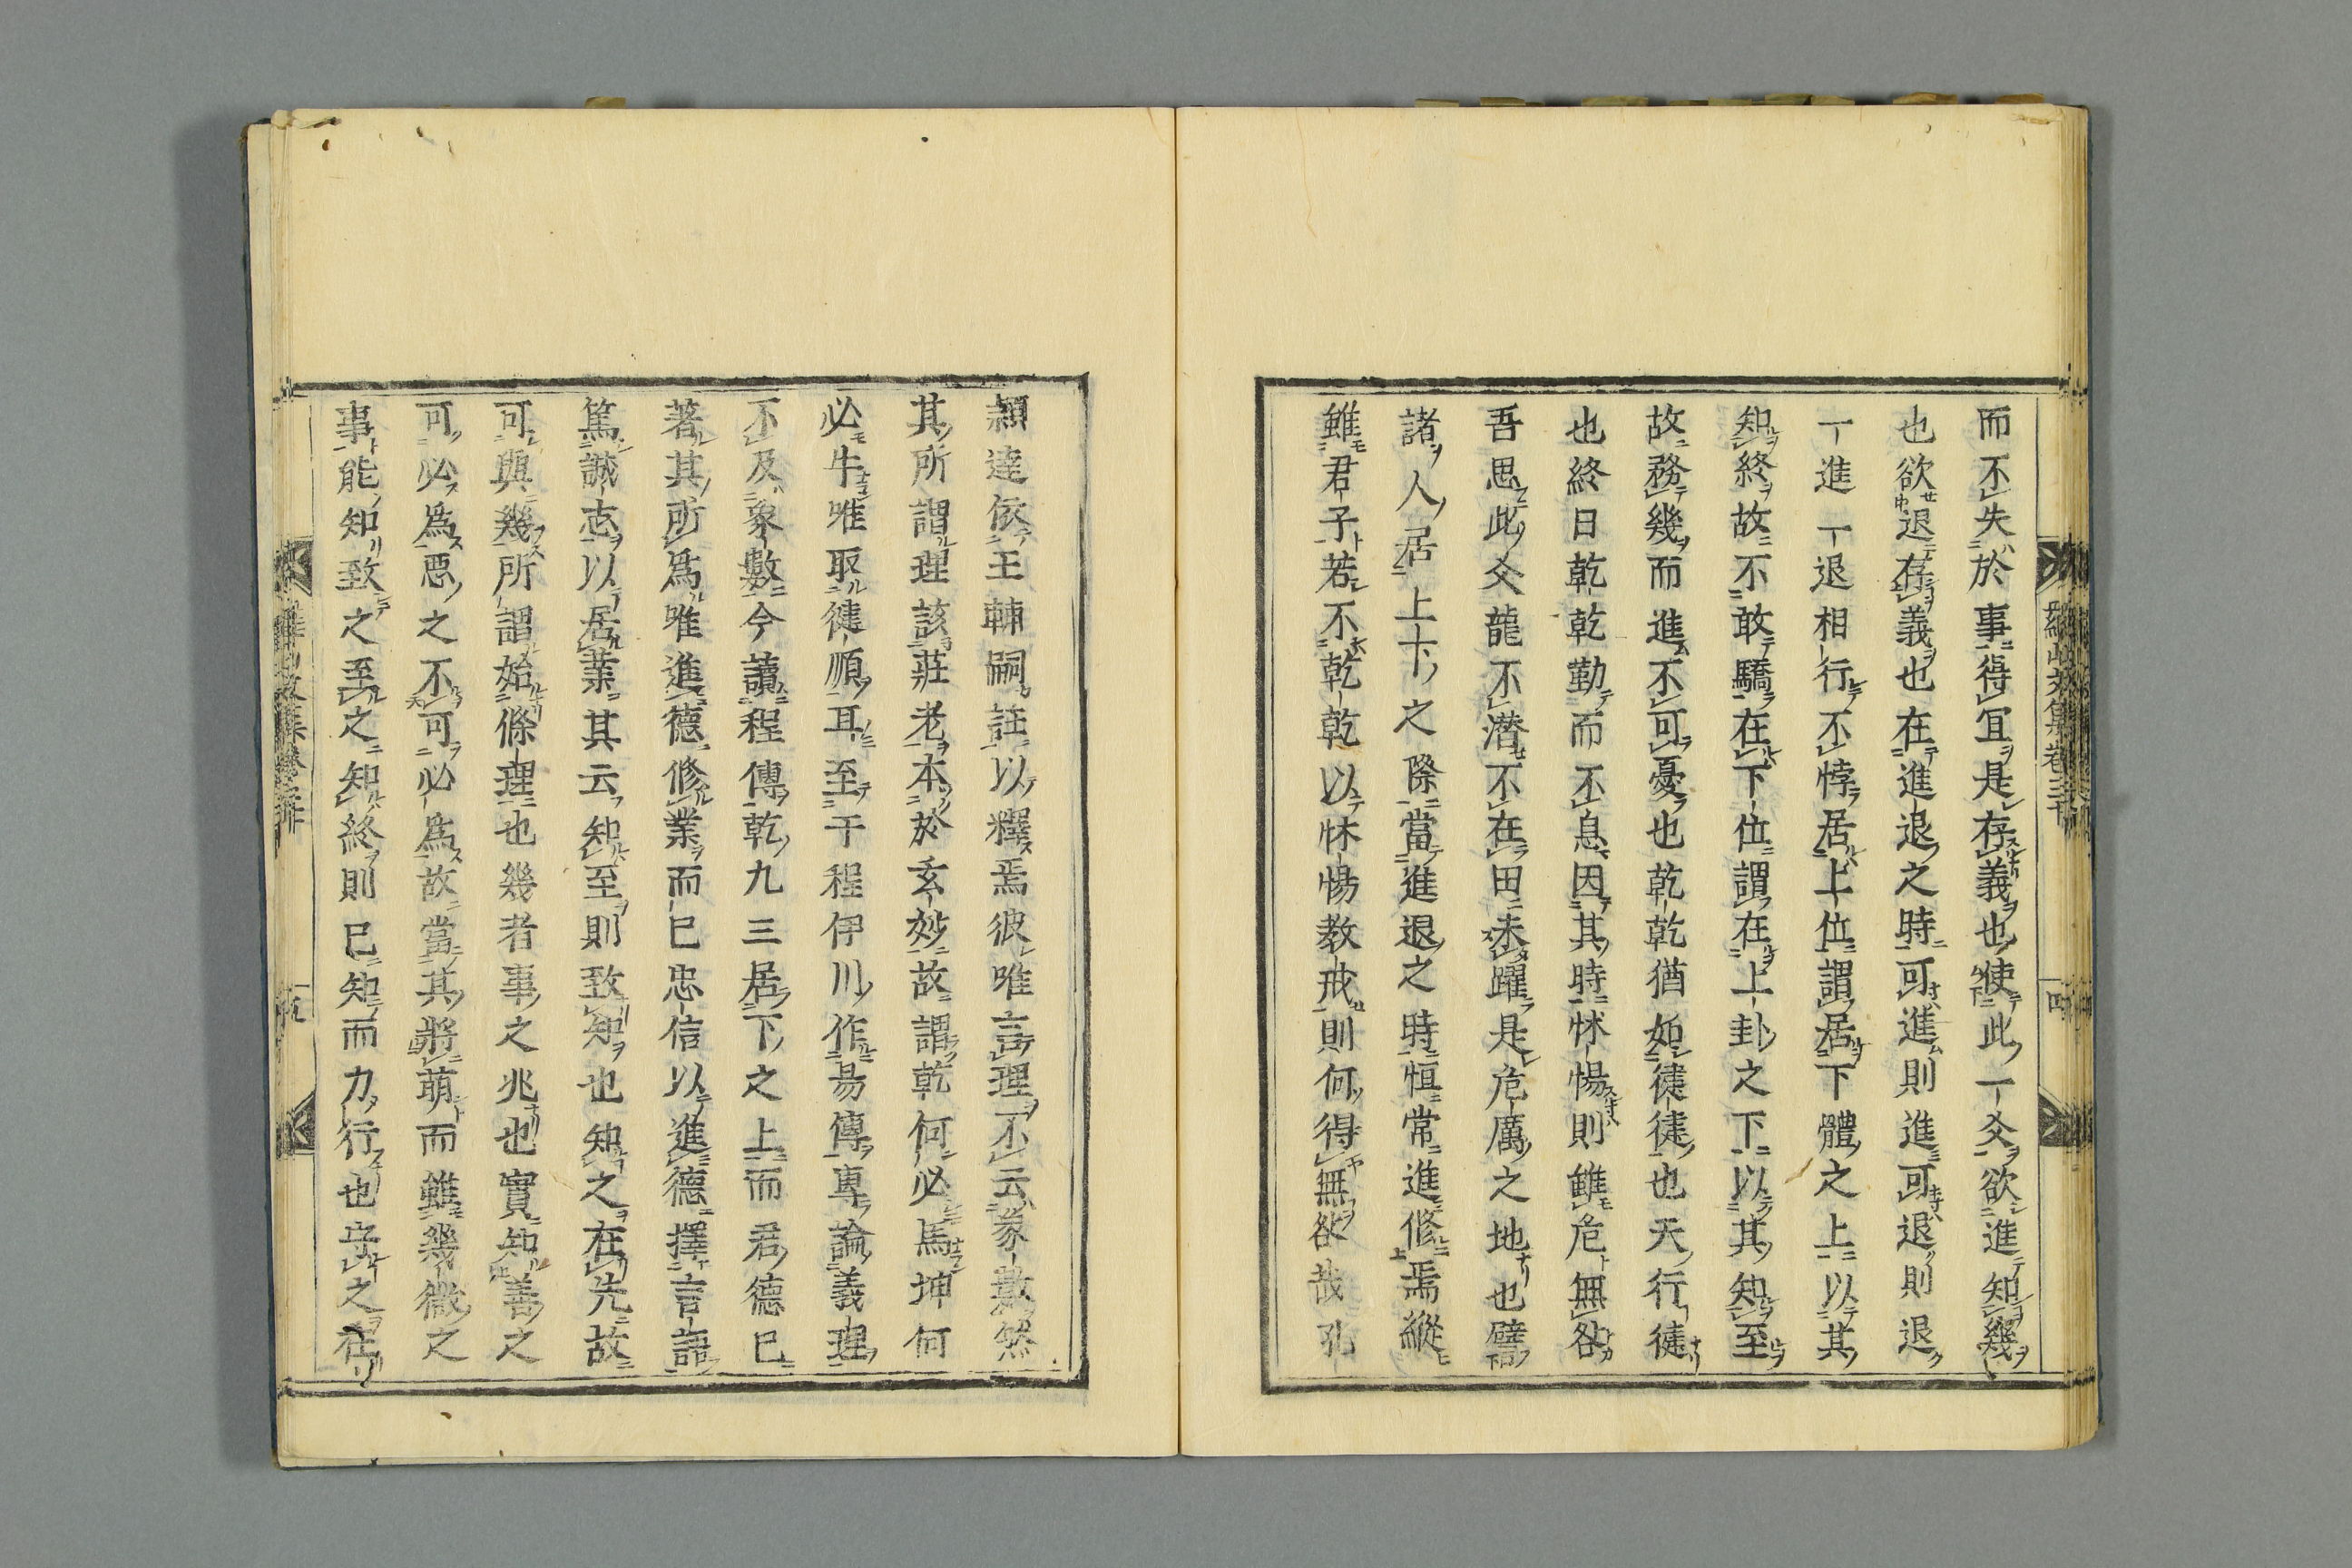 而不失於事得冝是存義也使此一爻欲進知幾
也欲退存義也在進退之時可進則進可退則退
一進一退相行不悖居上位謂居下體之上以其
知終故不敢驕在下位謂在上卦之下以其知至
故務幾而進不可憂也乾乾猶如徤徤也天行徤
也終日乾乾勤而不息因其時怵惕則雖危無咎
吾思此爻龍不潜不在田未躍是危厲之地也譬
諸人居上下之際當進退之時恒常進修焉縱
雖君子若不乾乾以怵惕教戒則何得無咎哉孔
四
頴達依王輔嗣註以釋焉彼唯言理不云象數然
其所謂理該莊老本於玄妙故謂乾何必馬坤何
必牛唯取徤順耳至于程伊川作易傳專論義理
不及象數今讀程傳乾九三居下之上而君德已
著其所爲唯進德修業而已忠信以進德擇言
篤志以居業其云知至則致知也知之在先故
可與幾所謂始條理也幾者事之兆也實知善之
可必爲惡之不可必爲故當其將萌而雖幾微之
事能知致之至之知終則已知而力行也守之在